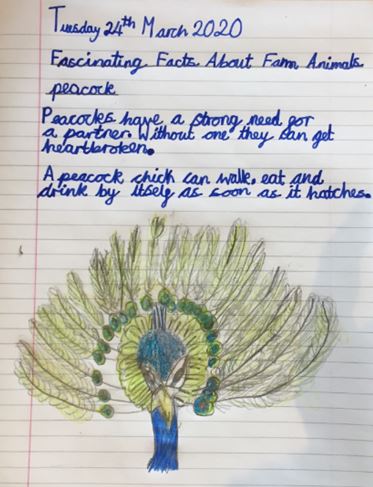 Tuesday 24th March 2020
Fascinating Facts About Farm Animals
peacock
Peacocks have a strong need for
a partner. Without one they can get
heartbroken.
A peacock chick can walk, eat and
drink by itself as soon as it hatches.